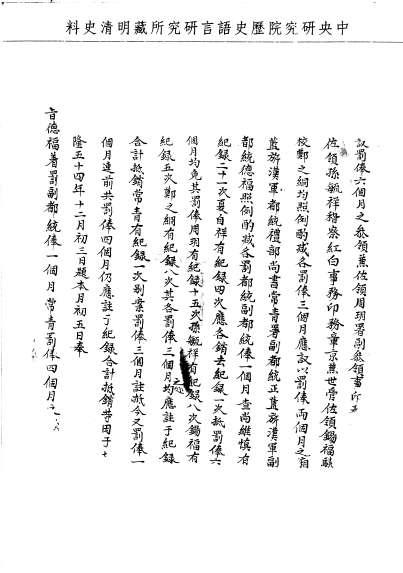 中央研究院歷史語言研究所藏明清史料
議罰俸六個月之叅領兼佐領周玥署副叅領事印
佐領孫毓祥稽察紅白事務印務章京兼世管佐領錫福驍騎
校鄭之綱均照例酌減各罰俸三個月應議以罰俸兩個月之前
藍旗漢軍都統禮部尚書常青署副都統正藍旗漢軍副
都統德福照例酌減各罰都統副都統俸一個月查尚維慎有
紀録二十一次夏自祥有紀録四次應各銷去紀録一次抵罰俸六
個月均免其罰俸周玥有紀録十五次孫毓祥有紀録八次錫福有
紀録五次鄭之綱有紀録八次其各罰俸三個月之處均應註于紀録
合計抵銷常青有紀録一次別案罰俸三個月註抵今又罰俸一
個月連前共罰俸四個月仍應註于紀録合計抵銷等因于
隆五十四年十二月初三日題本月初五日奉
旨德福着罰副都統俸一個月常青罰俸四個月之